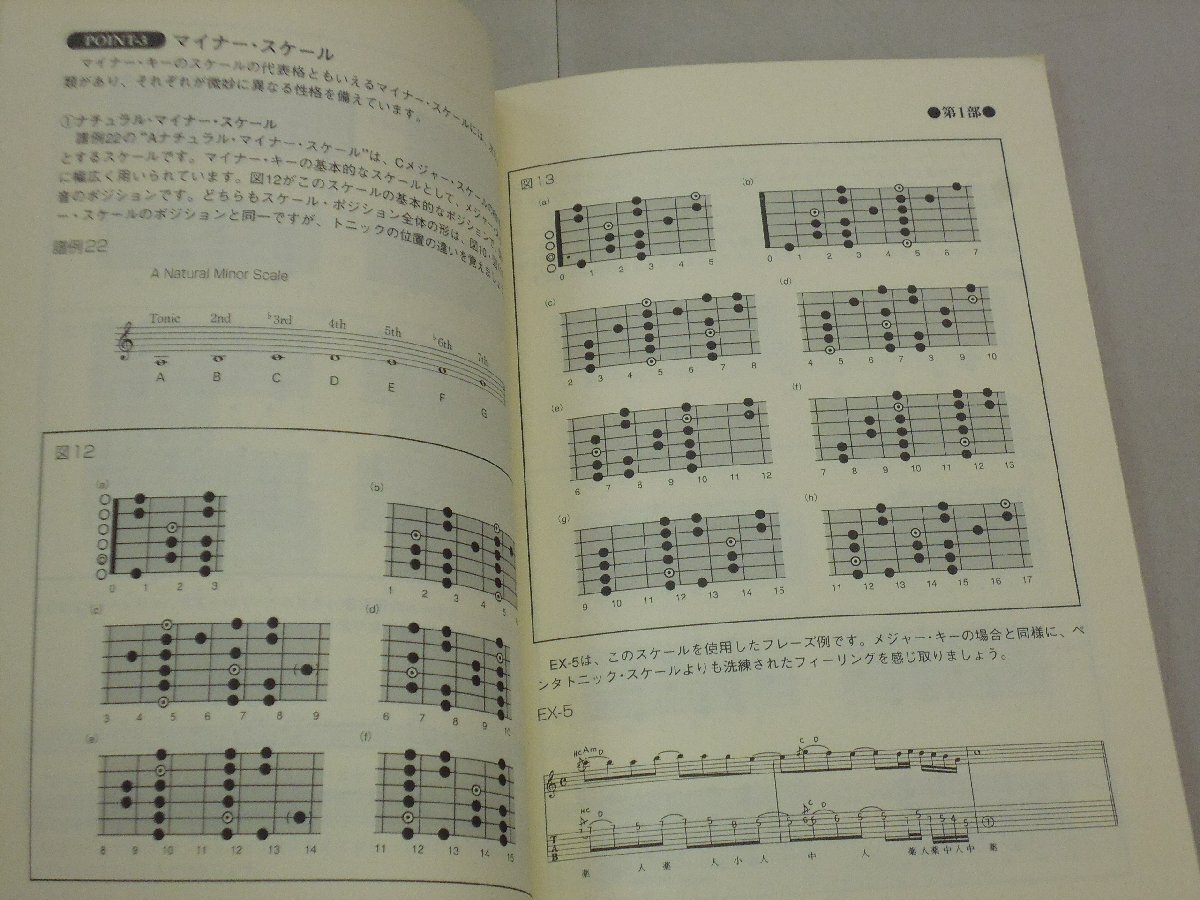 POINT-3 マイナー・スケール
マイナー・キーのスケールの代表格ともいえるマイナー・スケールには、
類があり、それぞれが微妙に異なる性格を備えています。
①ナチュラル・マイナー・スケール
譜例22の“Aナチュラル・マイナー・スケール”は、Cメジャー・スケールの
とするスケールです。マイナー・キーの基本的なスケールとして、メジャー
に幅広く用いられています。図12がこのスケールの基本的なポジションで、
音のポジションです。どちらもスケール・ポジション全体の形は、図10・
ー・スケールのポジションと同一ですが、トニックの位置の違いを覚える
譜例22
A Natural Minor Scale
Tonic 2nd ♭3rd 4th 5th ♭6th ♭7th
A B C D E F G
図12
(a) (b)
0 1 2 3
1 2 3 4 5
(c) (d)
3 4 5 6 7 8 9
6 7 8 9 10
(e) (f)
8 9 10 11 12 13 14
11 12 13 14 15
●第1部●
図13
(a) (b)
0 1 2 3 4 5
0 1 2 3 4 5 6 7
(c) (d)
2 3 4 5 6 7 8
4 5 6 7 8 9 10
(e) (f)
6 7 8 9 10 11 12
7 8 9 10 11 12 13
(g) (h)
9 10 11 12 13 14 15
11 12 13 14 15 16 17
EX-5は、このスケールを使用したフレーズ例です。メジャー・キーの場合と同様に、ペ
ンタトニック・スケールよりも洗練されたフィーリングを感じ取りましょう。
EX-5
HC Am D C D
HC D C D
TAB
薬 人 薬 人 小 人 中 人 薬 人 薬 中 人 中 薬